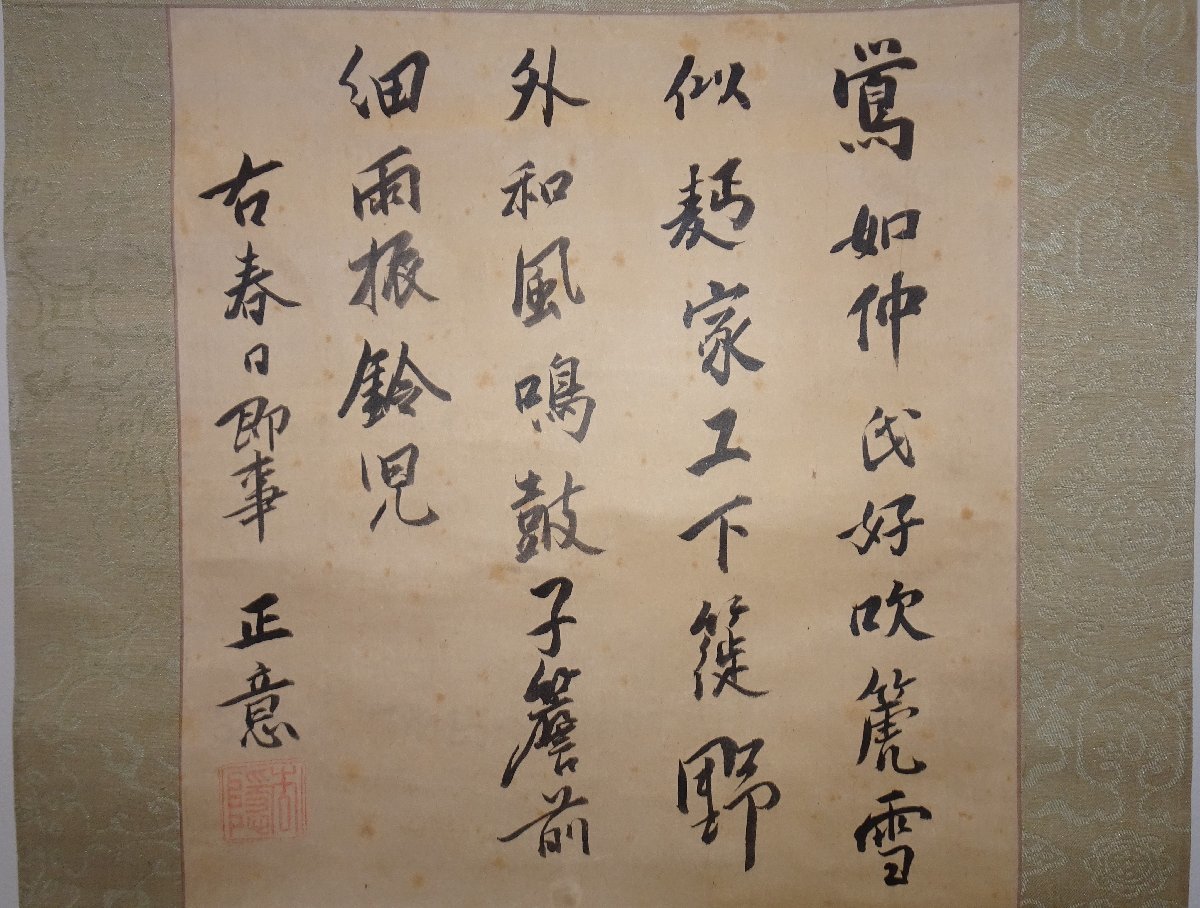 鶯如仲氏好吹箎雪
似麪家工下簁野
外和風鳴鼓子簷前
細雨振鈴児
右春日即事 正意